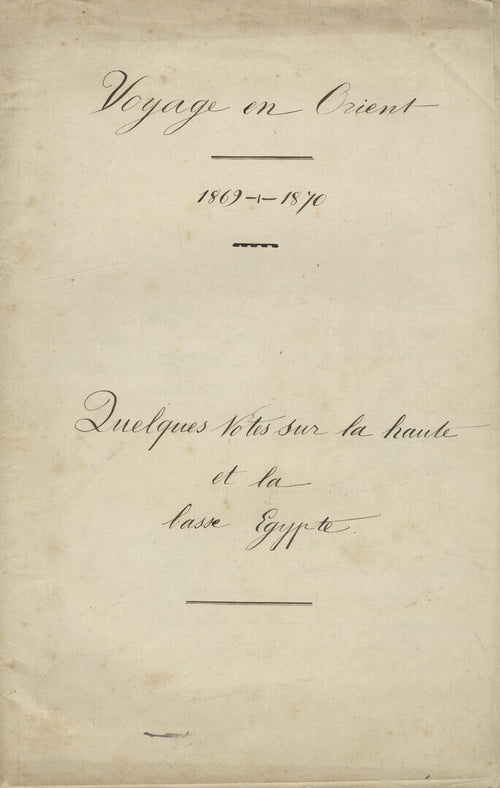 Voyage en Orient
1869-1-1870
Quelques Notes sur la haute
et la
basse Egypte.